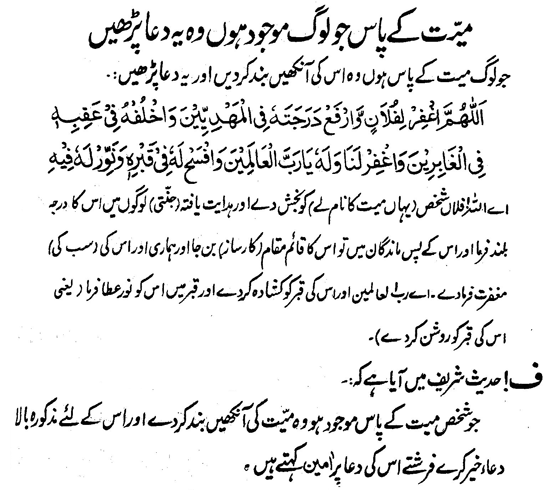 میّت کے پاس جو لوگ موجود ہوں وہ یہ دعا پڑھیں
جو لوگ میت کے پاس ہوں وہ اس کی آنکھیں بند کر دیں اور یہ دعا پڑھیں :۔
اَللّٰهُمَّ اغْفِرْ لِفُلَانٍ وَّارْفَعْ دَرَجَتَهٗ فِی الْمَهْدِیِّیْنَ وَاخْلُفْهُ فِیْ عَقِبِهٖ
فِی الْغَابِرِیْنَ وَاغْفِرْ لَنَا وَلَهٗ یَارَبَّ الْعَالَمِیْنَ وَافْسَحْ لَهٗ فِیْ قَبْرِهٖ وَنَوِّرْ لَهٗ فِیْهِ
اے اللہ! فلاں شخص (یہاں میت کا نام لے) کو بخش دے اور ہدایت یافتہ (جنتی) لوگوں میں اس کا درجہ
بلند فرما اور اس کے پس ماندگان میں تو اس کا قائم مقام (کارساز) بن جا اور ہماری اور اس کی (سب کی)
مغفرت فرما دے۔ اے رب العالمین اور اس کی قبر کو کشادہ کر دے اور قبر میں اس کو نور عطا فرما (یعنی
اس کی قبر کو روشن کر دے)۔
ف! حدیث شریف میں آیا ہے کہ :۔
جو شخص میت کے پاس موجود ہو وہ میّت کی آنکھیں بند کر دے اور اس کے لئے مذکورہ بالا
دعاء خیر کرے فرشتے اس کی دعا پر آمین کہتے ہیں ۔